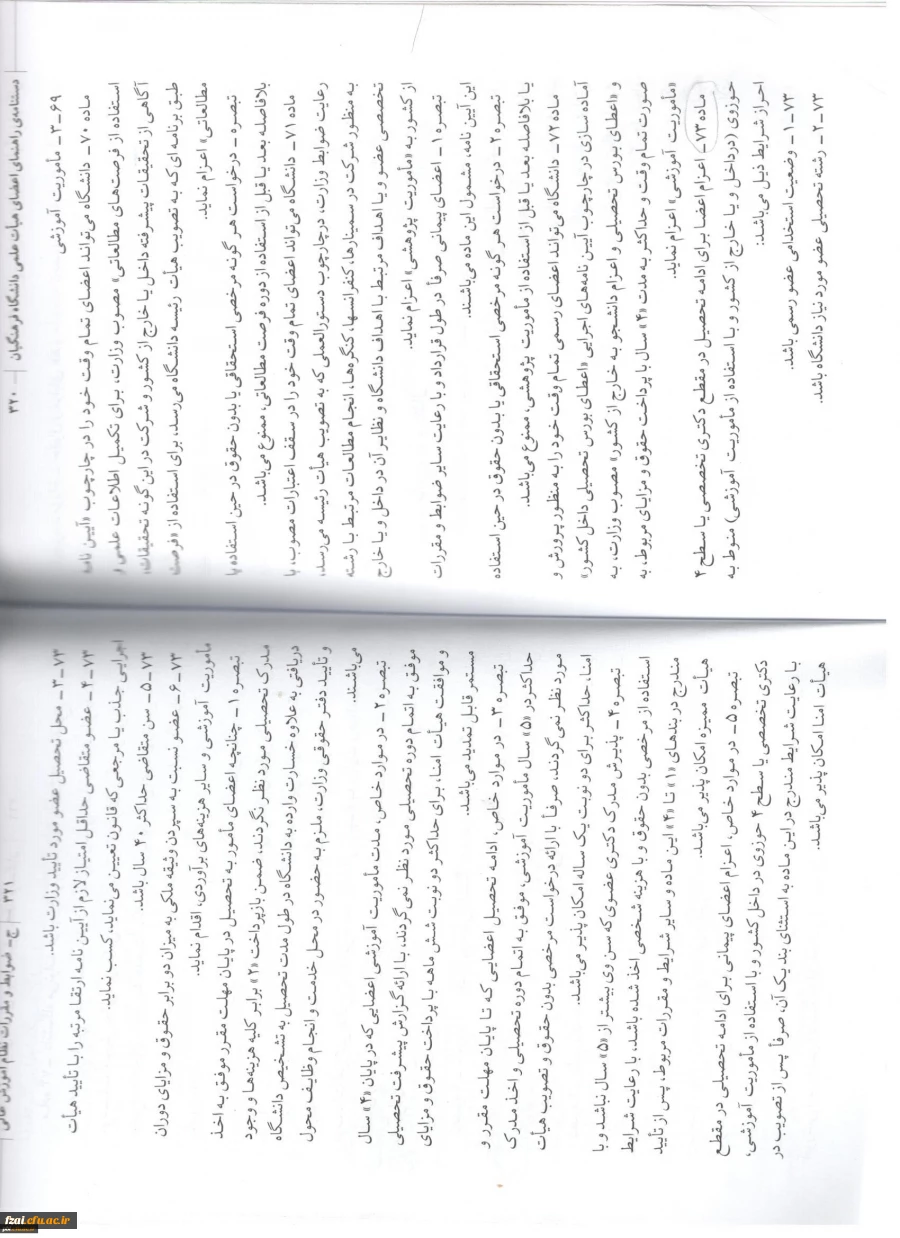 ۳۲۰ — دستنامه‌ی راهنمای اعضای هیأت علمی دانشگاه فرهنگیان
۶۹-۳- مأموریت آموزشی
ماده ۷۰- دانشگاه می‌تواند اعضای تمام وقت خود را در چارچوب «آیین نامه
استفاده از فرصت‌های مطالعاتی» مصوب وزارت، برای تکمیل اطلاعات علمی و
آگاهی از تحقیقات پیشرفته داخل یا خارج از کشور و شرکت در این گونه تحقیقات،
طبق برنامه ای که به تصویب هیأت رئیسه دانشگاه می‌رسد، برای استفاده از «فرصت
مطالعاتی» اعزام نماید.
تبصره - درخواست هر گونه مرخصی استحقاقی یا بدون حقوق در حین استفاده یا
بلافاصله بعد یا قبل از استفاده از دوره فرصت مطالعاتی، ممنوع می‌باشد.
ماده ۷۱- دانشگاه می‌تواند اعضای تمام وقت خود را در سقف اعتبارات مصوب، با
رعایت ضوابط وزارت، درچارچوب دستورالعملی که به تصویب هیأت رئیسه می‌رسد،
به منظور شرکت در سمینارها، کنفرانسها، کنگره‌ها، انجام مطالعات مرتبط با رشته
تخصصی عضو و یا اهداف مرتبط با اهداف دانشگاه و نظایر آن در داخل و یا خارج
از کشور به «مأموریت پژوهشی» اعزام نماید.
تبصره ۱- اعضای پیمانی صرفاً در طول قرارداد و با رعایت سایر ضوابط و مقررات
این آیین نامه، مشمول این ماده می‌باشند.
تبصره ۲- درخواست هر گونه مرخصی استحقاقی یا بدون حقوق در حین استفاده
یا بلافاصله بعد یا قبل از استفاده از مأموریت پژوهشی، ممنوع می‌باشد.
ماده ۷۲- دانشگاه می‌تواند اعضای رسمی تمام وقت خود را به منظور پرورش و
آماده سازی در چارچوب آیین نامه‌های اجرایی «اعطای بورس تحصیلی داخل کشور»
و «اعطای بورس تحصیلی و اعزام دانشجو به خارج از کشور» مصوب وزارت، به
صورت تمام وقت و حداکثر به مدت «۴» سال با پرداخت حقوق و مزایای مربوط، به
«مأموریت آموزشی» اعزام نماید.
ماده ۷۳- اعزام اعضا برای ادامه تحصیل در مقطع دکتری تخصصی یا سطح ۴
حوزوی (در داخل و یا خارج از کشور و با استفاده از مأموریت آموزشی) منوط به
احراز شرایط ذیل می‌باشد:
۷۳-۱- وضعیت استخدامی عضو رسمی باشد.
۷۳-۲- رشته تحصیلی عضو مورد نیاز دانشگاه باشد.
ج- ضوابط و مقررات نظام آموزش عالی — ۳۲۱
۷۳-۳- محل تحصیل عضو مورد تأیید وزارت باشد.
۷۳-۴- عضو متقاضی حداقل امتیاز لازم از آیین نامه ارتقا مرتبه را با تایید هیأت
اجرایی جذب یا مرجعی که قانون تعیین می‌نماید، کسب نماید.
۷۳-۵- سن متقاضی حداکثر ۴۰ سال باشد.
۷۳-۶- عضو نسبت به سپردن وثیقه ملکی به میزان دو برابر حقوق و مزایای دوران
مأموریت آموزشی و سایر هزینه‌های برآوردی، اقدام نماید.
تبصره ۱- چنانچه اعضای مأمور به تحصیل در پایان مهلت مقرر موفق به اخذ
مدرک تحصیلی مورد نظر نگردند، ضمن بازپرداخت «۲» برابر کلیه هزینه‌ها و وجوه
دریافتی به علاوه خسارت وارده به دانشگاه در طول مدت تحصیل به تشخیص دانشگاه
و تأیید دفتر حقوقی وزارت، ملزم به حضور در محل خدمت و انجام وظایف محول
می‌باشند.
تبصره ۲- در موارد خاص، مدت مأموریت آموزشی اعضایی که در پایان «۴» سال
موفق به اتمام دوره تحصیلی مورد نظر نمی گردند، با ارائه گزارش پیشرفت تحصیلی
و موافقت هیأت امنا، برای حداکثر دو نوبت شش ماهه با پرداخت حقوق و مزایای
مستمر قابل تمدید می‌باشد.
تبصره ۳- در موارد خاص، ادامه تحصیل اعضایی که تا پایان مهلت مقرر و
حداکثر در «۵» سال مأموریت آموزشی، موفق به اتمام دوره تحصیلی و اخذ مدرک
مورد نظر نمی گردند، صرفاً با ارائه درخواست مرخصی بدون حقوق و تصویب هیأت
امنا، حداکثر برای دو نوبت یک ساله امکان پذیر می‌باشد.
تبصره ۴- پذیرش مدرک دکتری عضوی که سن وی بیشتر از «۵» سال نباشد و با
استفاده از مرخصی بدون حقوق و با هزینه شخصی اخذ شده باشد، با رعایت شرایط
مندرج در بندهای «۱» تا «۴» این ماده و سایر شرایط و مقررات مربوط، پس از تأیید
هیأت ممیزه امکان پذیر می‌باشد.
تبصره ۵- در موارد خاص، اعزام اعضای پیمانی برای ادامه تحصیلی در مقطع
دکتری تخصصی یا سطح ۴ حوزوی در داخل کشور و با استفاده از مأموریت آموزشی،
با رعایت شرایط مندرج در این ماده به استثنای بند یک آن، صرفاً پس از تصویب در
هیأت امنا امکان پذیر می‌باشد.
fzai.cfu.ac.ir